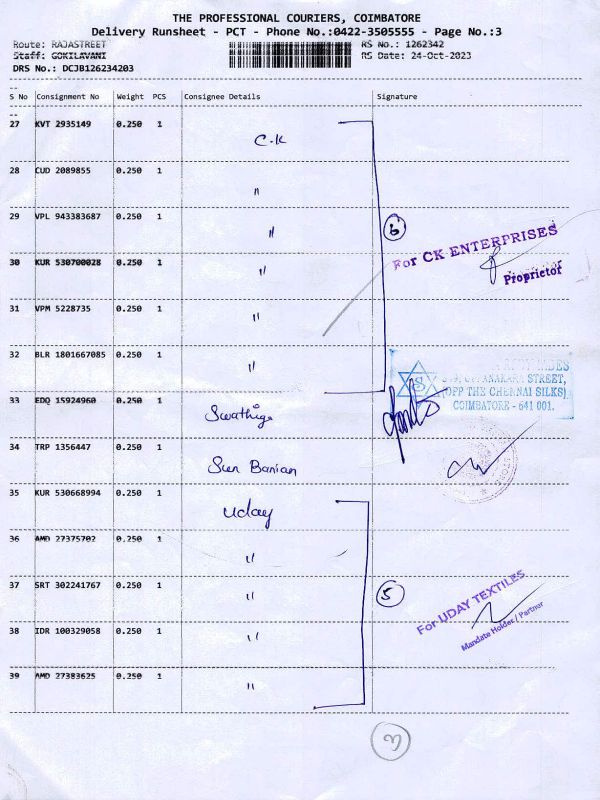 THE PROFESSIONAL COURIERS, COIMBATORE
Delivery Runsheet - PCT - Phone No.:0422-3505555 - Page No.:3
Route: RAJASTREET
RS No.: 1262342
Staff: GOKILAVANI
RS Date: 24-Oct-2023
DRS No.: DCJB126234203
S No Consignment No Weight PCS Consignee Details Signature
27 KVT 2935149 0.250 1 C.K
28 CUD 2089855 0.250 1 "
29 VPL 943383687 0.250 1 "
6
For CK ENTERPRISES
Proprietor
30 KUR 530700028 0.250 1 "
31 VPM 5228735 0.250 1 "
32 BLR 1801667085 0.250 1 "
S
STREET,
(OFF THE CHENNAI SILKS)
COIMBATORE - 641 001.
33 EDQ 15924960 0.250 1 Swathiga
34 TRP 1356447 0.250 1 Sun Banian
35 KUR 530668994 0.250 1 Uday
36 AMD 27375702 0.250 1 "
37 SRT 302241767 0.250 1 "
5
For UDAY TEXTILES
Mandate Holder / Partner
38 IDR 100329058 0.250 1 "
39 AMD 27383625 0.250 1 "
3